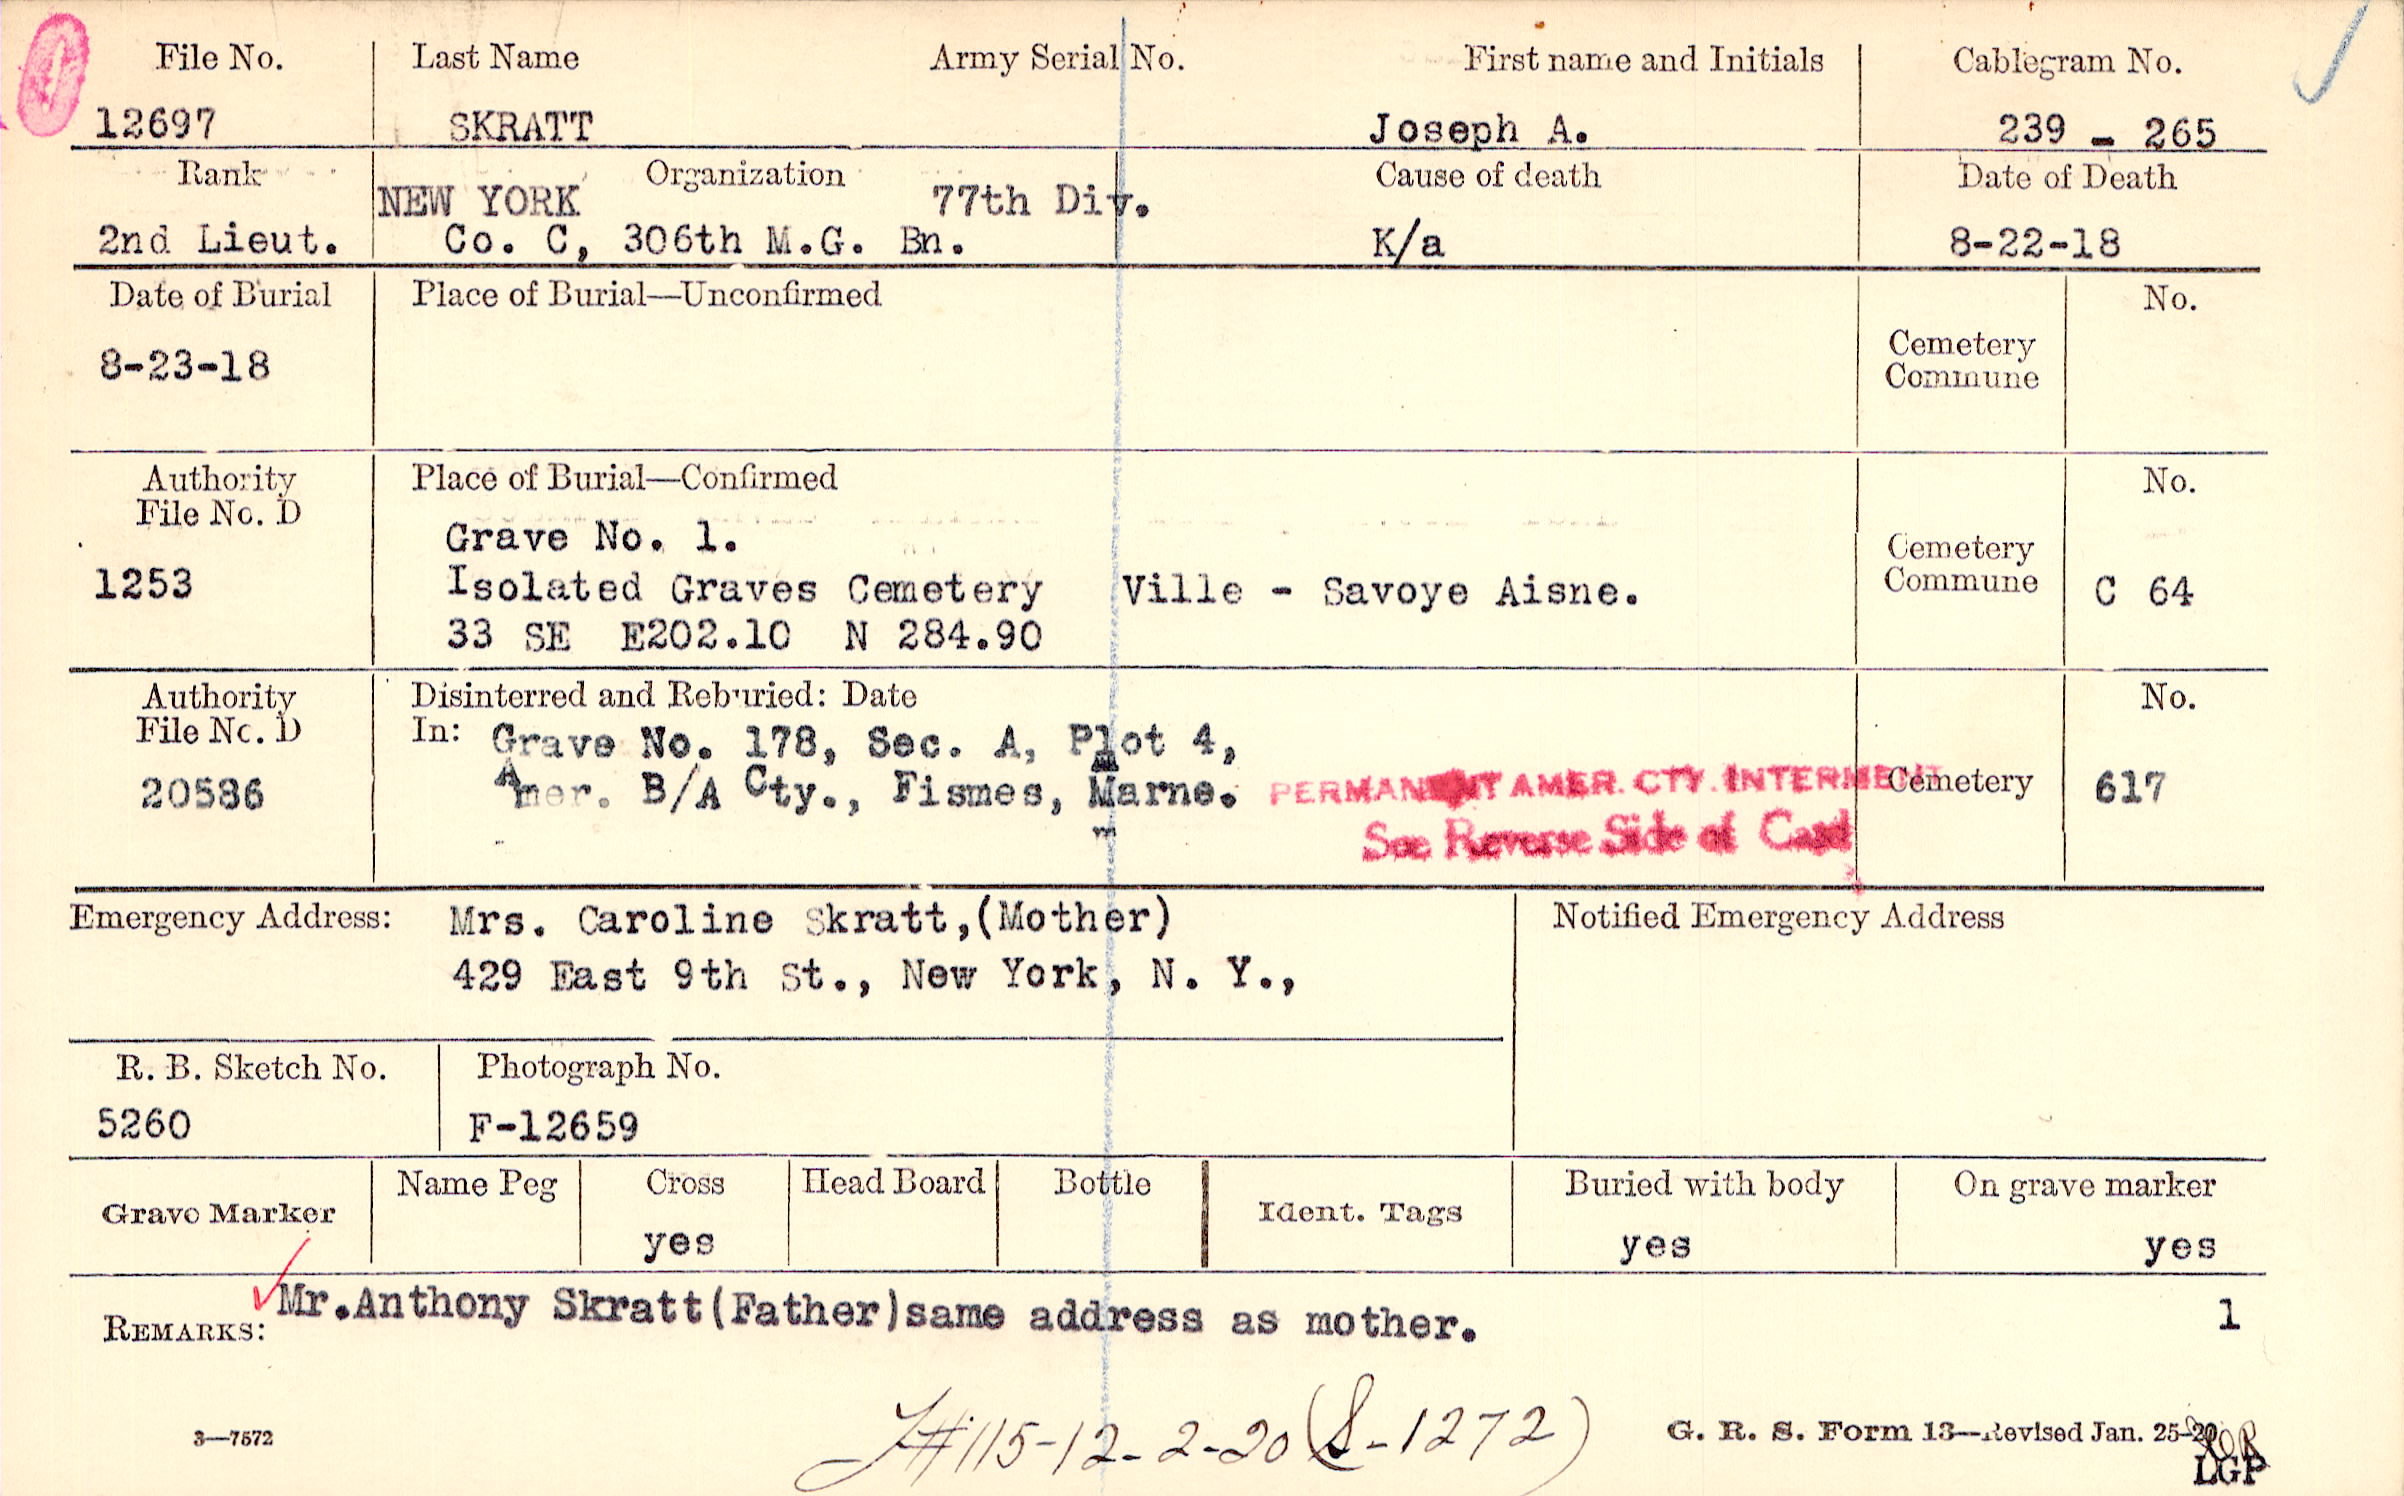 File No. Last Name Army Serial No. First name and Initials Cablegram No.
12697 SKRATT Joseph A. 239 - 265
Rank Organization Cause of death Date of Death
NEW YORK 77th Div.
2nd Lieut. Co. C, 306th M.G. Bn. K/a 8-22-18
Date of Burial Place of Burial—Unconfirmed No.
8-23-18 Cemetery
Commune
Authority Place of Burial—Confirmed No.
File No. D
Grave No. 1.
1253 Isolated Graves Cemetery Ville - Savoye Aisne. Cemetery
Commune C 64
33 SE E202.10 N 284.90
Authority Disinterred and Reburied: Date No.
File No. D In: Grave No. 178, Sec. A, Plot 4,
20586 Amer. B/A Cty., Fismes, Marne. PERMANENT AMER. CTY. INTERMENT Cemetery 617
See Reverse Side of Card
Emergency Address: Mrs. Caroline Skratt,(Mother) Notified Emergency Address
429 East 9th St., New York, N. Y.,
R. B. Sketch No. Photograph No.
5260 F-12659
Grave Marker Name Peg Cross Head Board Bottle Ident. Tags Buried with body On grave marker
yes yes yes
REMARKS: Mr.Anthony Skratt(Father)same address as mother. 1
#115-12-2-20 (S-1272)
3—7572 G. R. S. Form 13—Revised Jan. 25-20
LGP